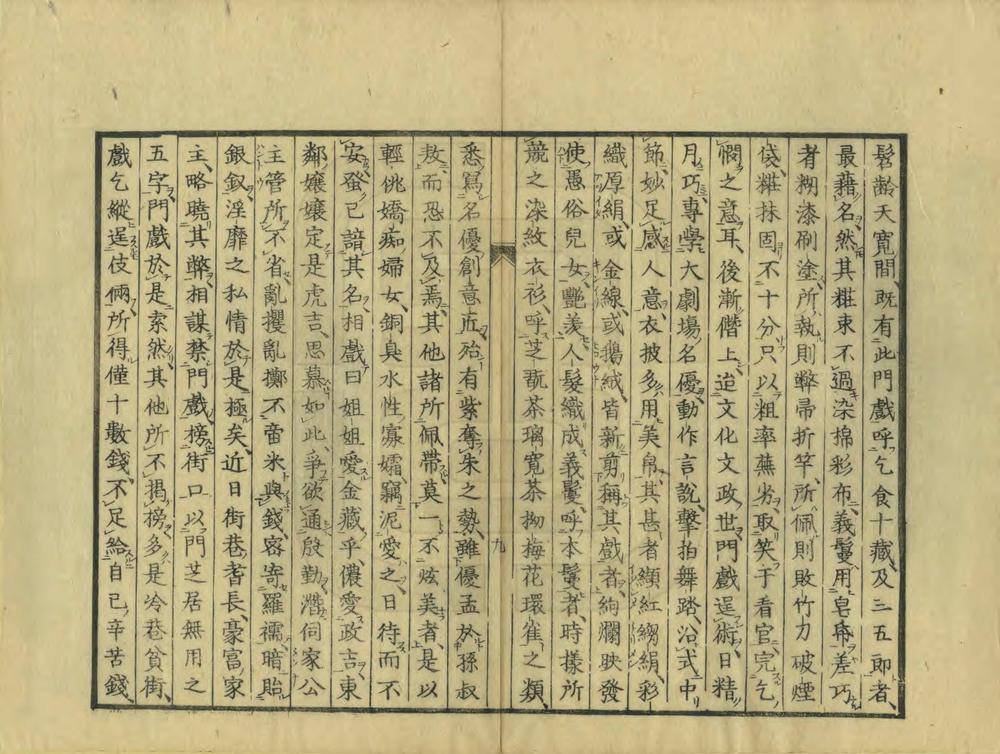 髫齡天寛間、既有此門戲呼乞食十藏、及三五郎者、
最藉名、然其糚束不過染棉彩布、義鬘用皂帋、差巧
者糊漆刷塗、所執則弊帚折竿、所佩則敗竹刀破煙
袋、糚抹固不十分、只以粗率蕪劣取笑于看官、完乞
憫之意耳、後漸僭上、迨文化文政世門戲逞術、日精
月巧、專學大劇場名優動作言說、擊拍舞踏、沿式中
節、妙足感人意、衣披多用美帛、其甚者纈紅縐絹、彩
織厚絹或金線、或鵝絨、皆新剪稱其戲者、絢爛映發
使愚俗兒女艷羨人髮織成義鬘、呼本鬘者、時樣所
競之染紋衣衫、呼芝翫茶璃寬茶拗梅花環雀之類、
九
悉寫名優創意、㡳殆有紫奪朱之勢、雖優孟於孫叔
敖、而恐不及焉、其他諸所佩帶莫一不炫美者、是以
輕佻嬌痴婦女、銅臭水性寡孀、竊泥愛之、日待而不
安、蚤已諳其名、相戲曰姐姐愛金藏乎、儂愛政吉、東
鄰孃孃定是虎吉、思慕如此、爭欲通殷勤、潛伺家公
主管所不省、亂攫亂擲、不啻米與錢、密寄羅襦、暗貽
銀釵、淫靡之私情於是極矣、近日街巷耆長、豪富家
主、略曉其弊、相謀禁門戲、榜街口、以門芝居無用之
五字、門戲於是索然、其他所不揭榜、多是冷巷貧街、
戲乞縱逞伎倆、所得僅十數錢、不足給自已辛苦錢、